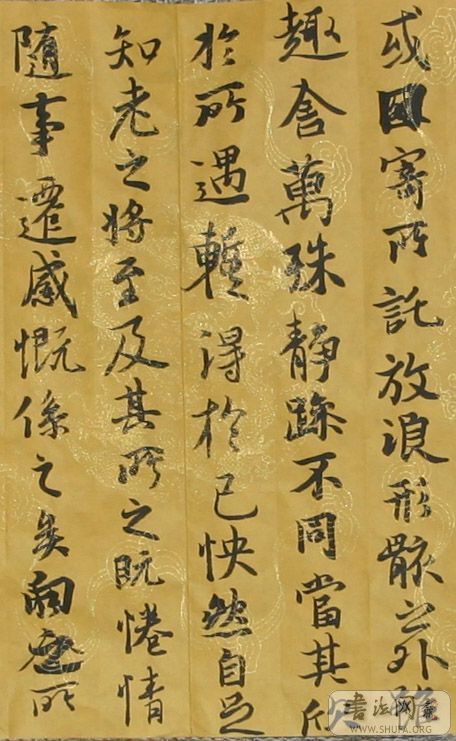 或因寄所託放浪形骸之外雖
趣舍萬殊靜躁不同當其欣
於所遇蹔得於己快然自足
知老之將至及其所之既惓情
隨事遷感慨係之矣向之所
書法网
WWW.SHUFA.ORG